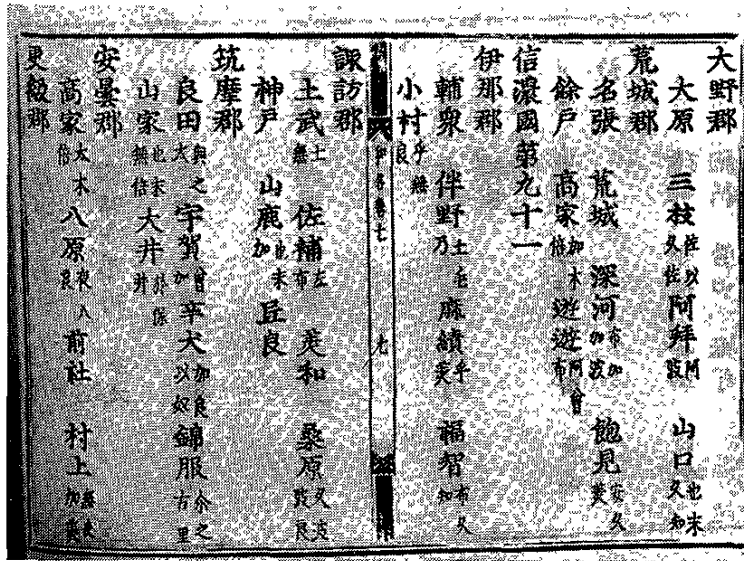 大野郡
大原 三枝佐以久佐 阿拜阿波 山口也末久知
荒城郡
名張 荒城 深河布加加波 飽見安久美
餘戸 高家加木倍 遊遊阿曾布
信濃國第九十一
伊那郡
輔衆 伴野土毛乃 麻績乎美 福智布久知
小村乎無良
和名卷七 九
諏訪郡
土武土無 佐補左布 美和 桑原久波波良
神戸 山鹿也末加 弖良
筑摩郡
良田與之太 宇賀曾加 辛犬加良以奴 錦服介之古里
山家也末無倍 大井於保井
安曇郡
高家太木倍 八原夜八良 前社 村上無良加美
更級郡